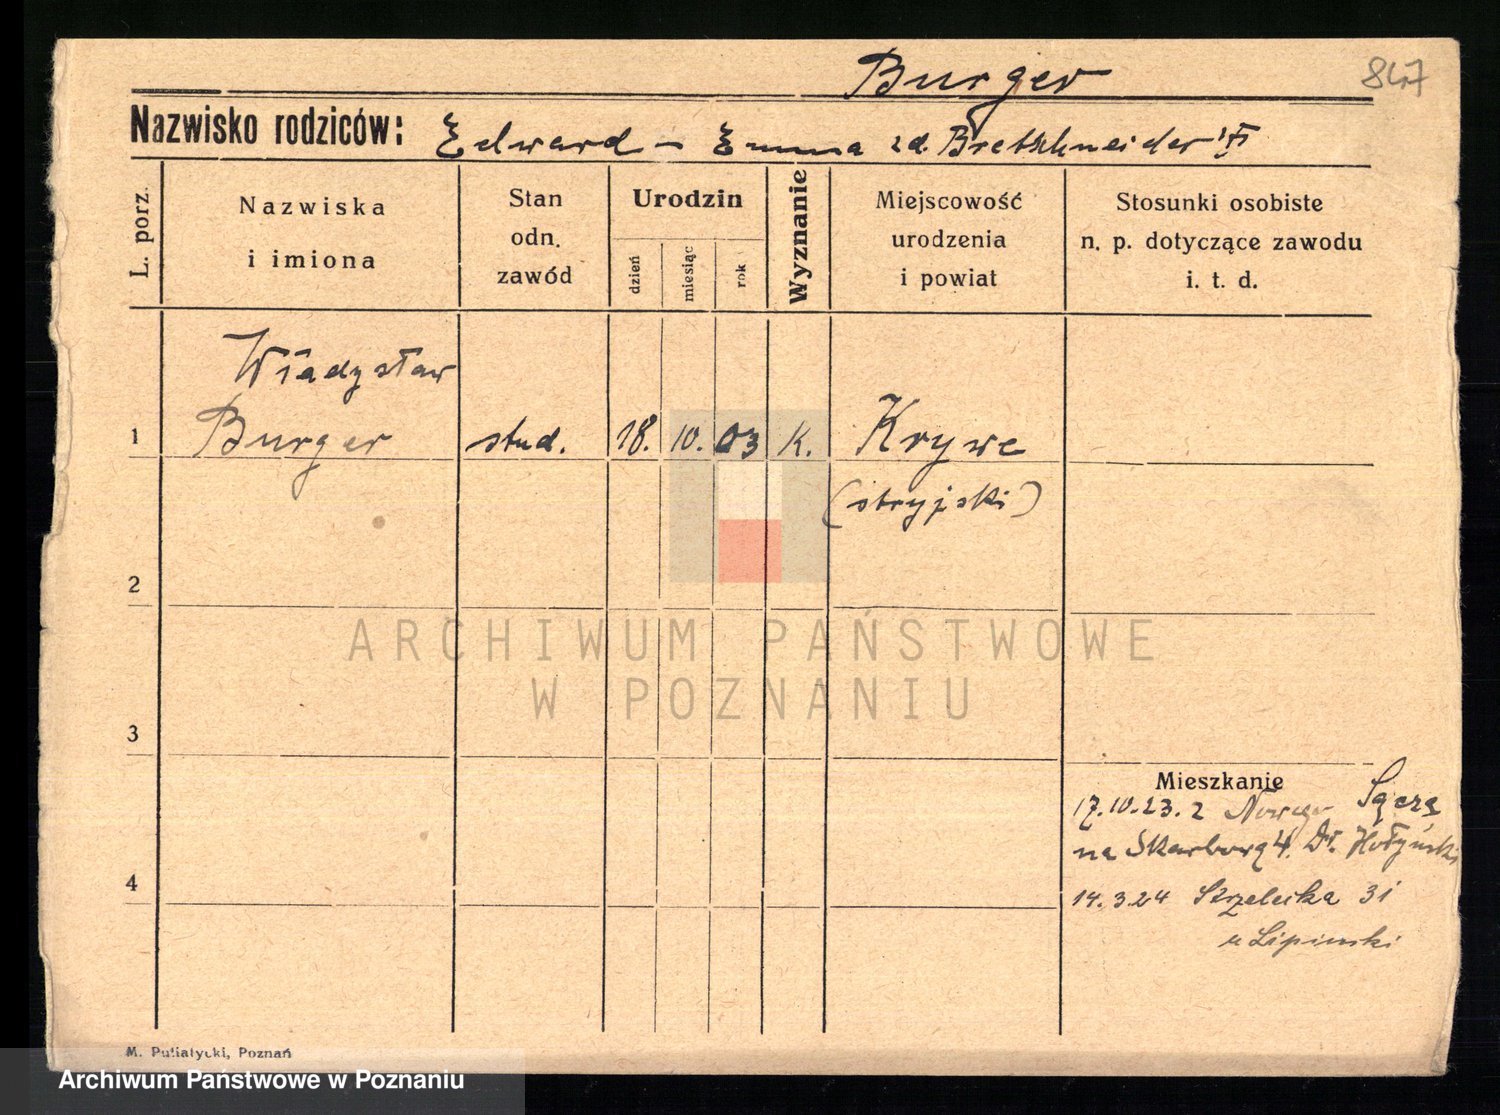 Burger
847
Nazwisko rodziców: Edward – Emma zd. Bretschneider
L. porz.
Nazwiska
i imiona
Stan
odn.
zawód
Urodzin
dzień
miesiąc
rok
Wyznanie
Miejscowość
urodzenia
i powiat
Stosunki osobiste
n. p. dotyczące zawodu
i. t. d.
Władysław
1 Burger stud. 18. 10. 03 K. Krywe
(stryjski)
2
ARCHIWUM PAŃSTWOWE
W POZNANIU
3
Mieszkanie
17.10.23. z Nowego Sącza
na Skarbową 4. Dr. Hołyński
4
14.3.24 Strzelecka 31
u Lipinski
M. Putiatycki, Poznań
Archiwum Państwowe w Poznaniu